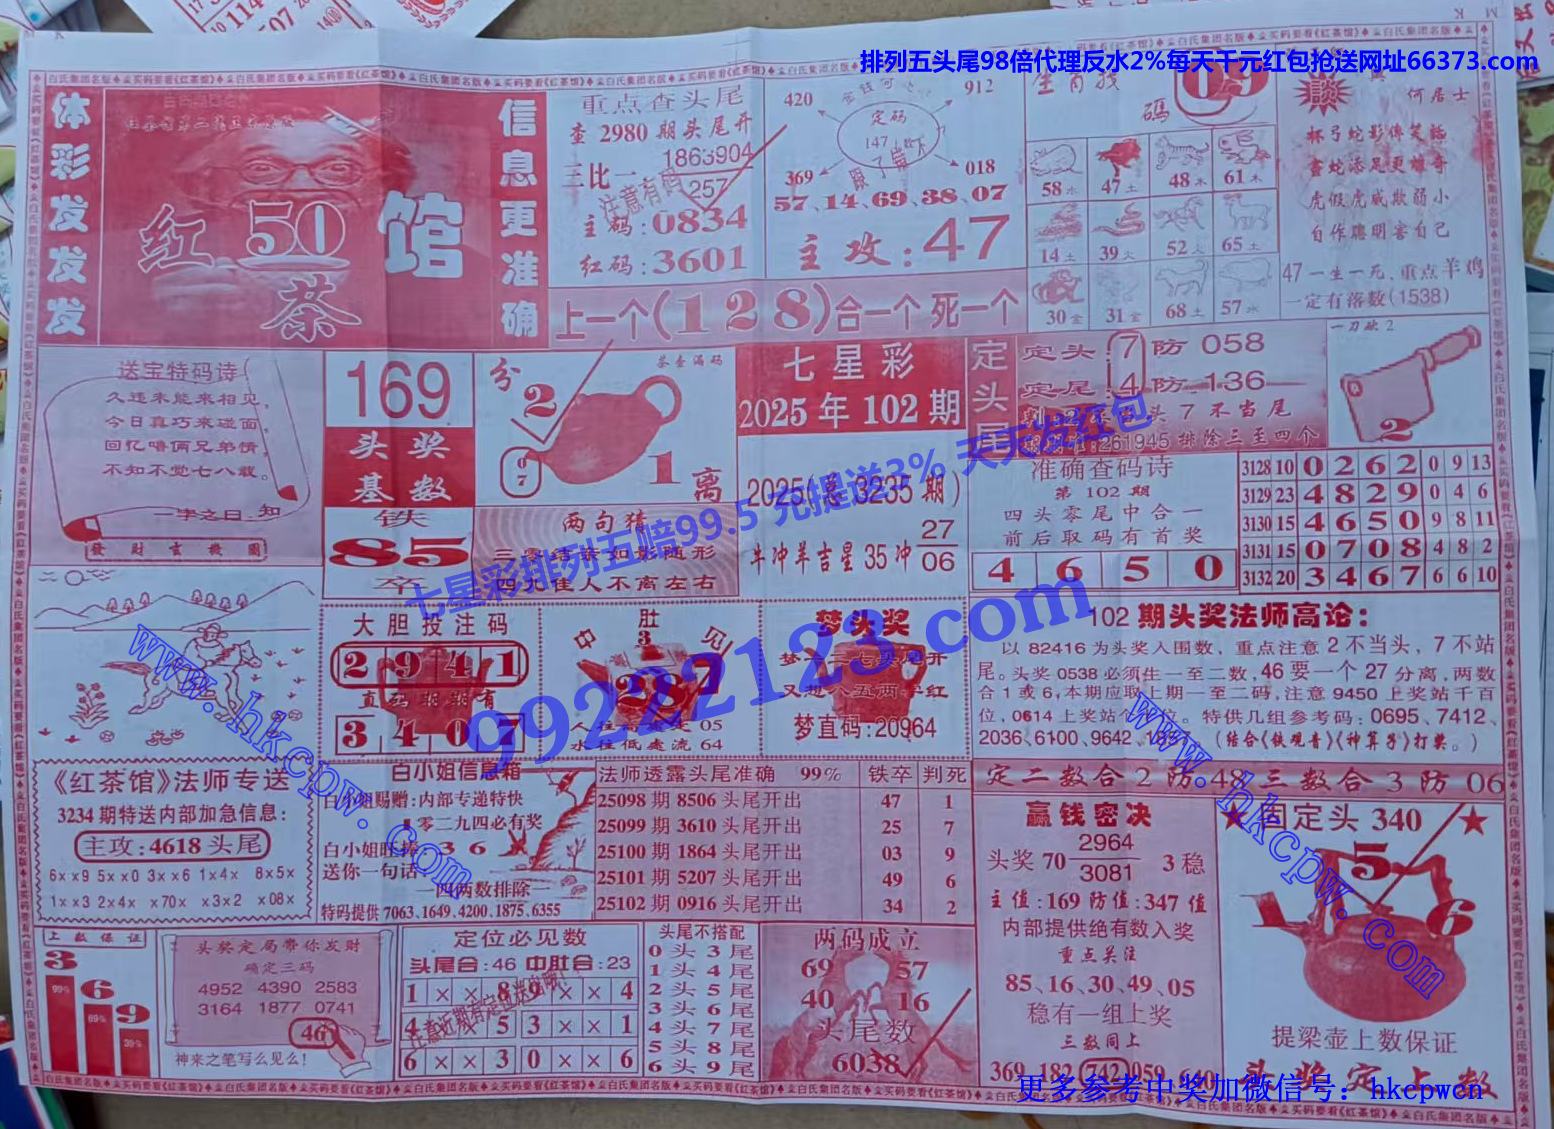 排列五头尾98倍代理反水2%每天千元红包抢送网址66373.com
体彩发发发
信息更准确
红 50 馆
茶
重点查头尾
查 2980 期头尾开
三比一 1863904
257
主码:0834
红码:3601
420
912
定码
147
369
018
57、14、69、38、07
主攻:47
生肖找
碼 09
58水 47土 48木 61木
14土 39火 52火 65土
30金 31金 68土 57水
何居士
杯弓蛇影傳笑話
畫蛇添足更離奇
虎假虎威欺弱小
自作聰明害自己
47一生一死,重点羊鸡
一定有落数(1538)
上一个(128)合一个 死一个
送宝特码诗
久违未能来相见,
今日真巧来碰面,
回忆噜俩兄弟情,
不知不觉七八载。
一字之曰 知
發財玄機圖
169
头奖
基数
铁
85
卒
茶壶漏码
分 2
1 离
两句猜
四九佳人不离左右
七星彩
2025年102期
2025(总3235期)
牛冲羊吉星 35 冲 27
06
定头尾
定头:7 防 058
定尾:4 防 136
一刀砍2
2
准确查码诗
第 102 期
四头零尾中合一
前后取码有首奖
4 6 5 0
3128 10 0 2 6 2 0 9 13
3129 23 4 8 2 9 0 4 6
3130 15 4 6 5 0 9 8 11
3131 15 0 7 0 8 4 8 2
3132 20 3 4 6 7 6 6 10
七星彩排列五赔99.5 充提送3% 天天发红包
99222123.com
www.hkcpw.com
www.hkcpw.com
大胆投注码
2 9 4 1
直码期期有
3 4 0 7
中肚见
3
287
05
水往低處流 64
梦头奖
梦直码:20964
102 期头奖法师高论:
以 82416 为头奖入围数,重点注意 2 不当头,7 不站
尾。头奖 0538 必须生一至二数,46 要一个 27 分离,两数
合 1 或 6,本期应取上期一至二码,注意 9450 上奖站千百
2036,6100,9642 (结合《铁观音》《神算子》打奖。)
定二数合 2 防 48 三数合 3 防 06
《红茶馆》法师专送
3234 期特送内部加急信息:
主攻:4618 头尾
6××9 5××0 3××6 1×4× 8×5×
1××3 2×4× ×70× ×3×2 ×08×
白小姐信息箱
白小姐赐赠:内部专递特快
零二九四必有奖
送你一句话
一四两数排除
特码提供 7063,1649,4200,1875,6355
法师透露头尾准确 99% 铁卒 判死
25098 期 8506 头尾开出 47 1
25099 期 3610 头尾开出 25 7
25100 期 1864 头尾开出 03 9
25101 期 5207 头尾开出 49 6
25102 期 0916 头尾开出 34 2
赢钱密决
头奖 70 2964
3081 3 稳
主值:169 防值:347 值
内部提供绝有数入奖
重点关注
85、16、30、49、05
稳有一组上奖
三数同上
369 182 742 059 640
固定头 340
5
6
提梁壶上数保证
头奖定上数
上数保证
3 6 9
头奖定局带你发财
确定三码
4952 4390 2583
3164 1877 0741
46
神来之笔写么见么!
定位必见数
头尾合:46 中肚合:23
1 × × 8 9 × × 4
4 5 3 × × 1
6 × × 3 0 × × 6
头尾不搭配
0 头 3 尾
1 头 4 尾
2 头 5 尾
3 头 6 尾
4 头 7 尾
5 头 8 尾
6 头 9 尾
两码成立
69 57
40 16
头尾数
6038
更多参考中奖加微信号:hkcpwcn